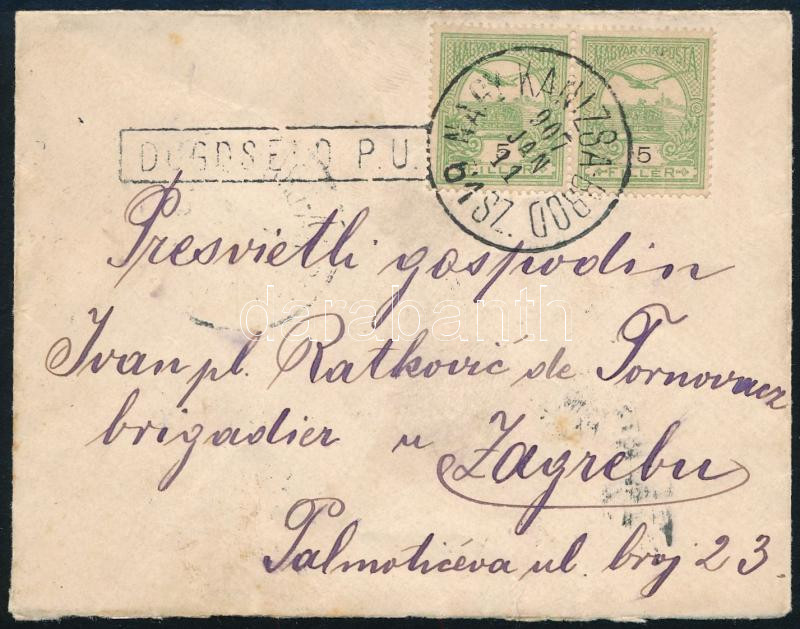 MAGYAR KIR. POSTA MAGYAR KIR. POSTA
5 5
FILLÉR FILLÉR
NAGY KANIZSA-BROD
901 JAN 11
61 SZ.
DUGOSELO P.U.
Presvietli gospodin
darabanth
Ivan pl. Ratković de Tornovacz
brigadier u Zagrebu
Palmotićeva ul. broj 23